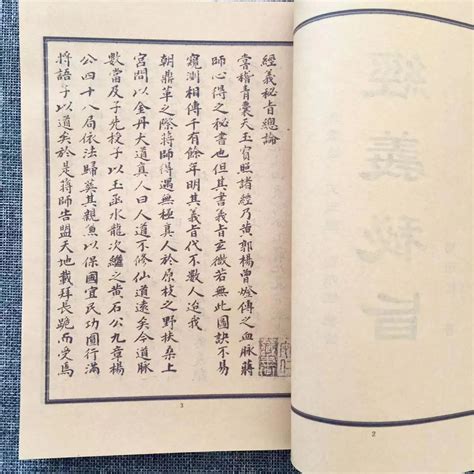 經義秘旨總論
嘗稽青囊天玉寶照諸經乃黃郭楊曾燈傳之血脈蔣
師心得之秘書也但其書義旨玄微若無此圖訣不易
窺測相傳千有餘年明其義旨代不數人迨我
朝鼎革之際蔣師得遇無極真人於原枝之野扶桑上
宮問以金丹大道真人曰人道不修仙道遠矣今道脈
數當及子先授子以玉函水龍次繼之黃石公九章楊
公四十八局依法歸葬其親兼以保國宜民功圓行滿
將語子以道矣於是蔣師告盟天地載拜長跪而受焉
3
經義秘旨
2